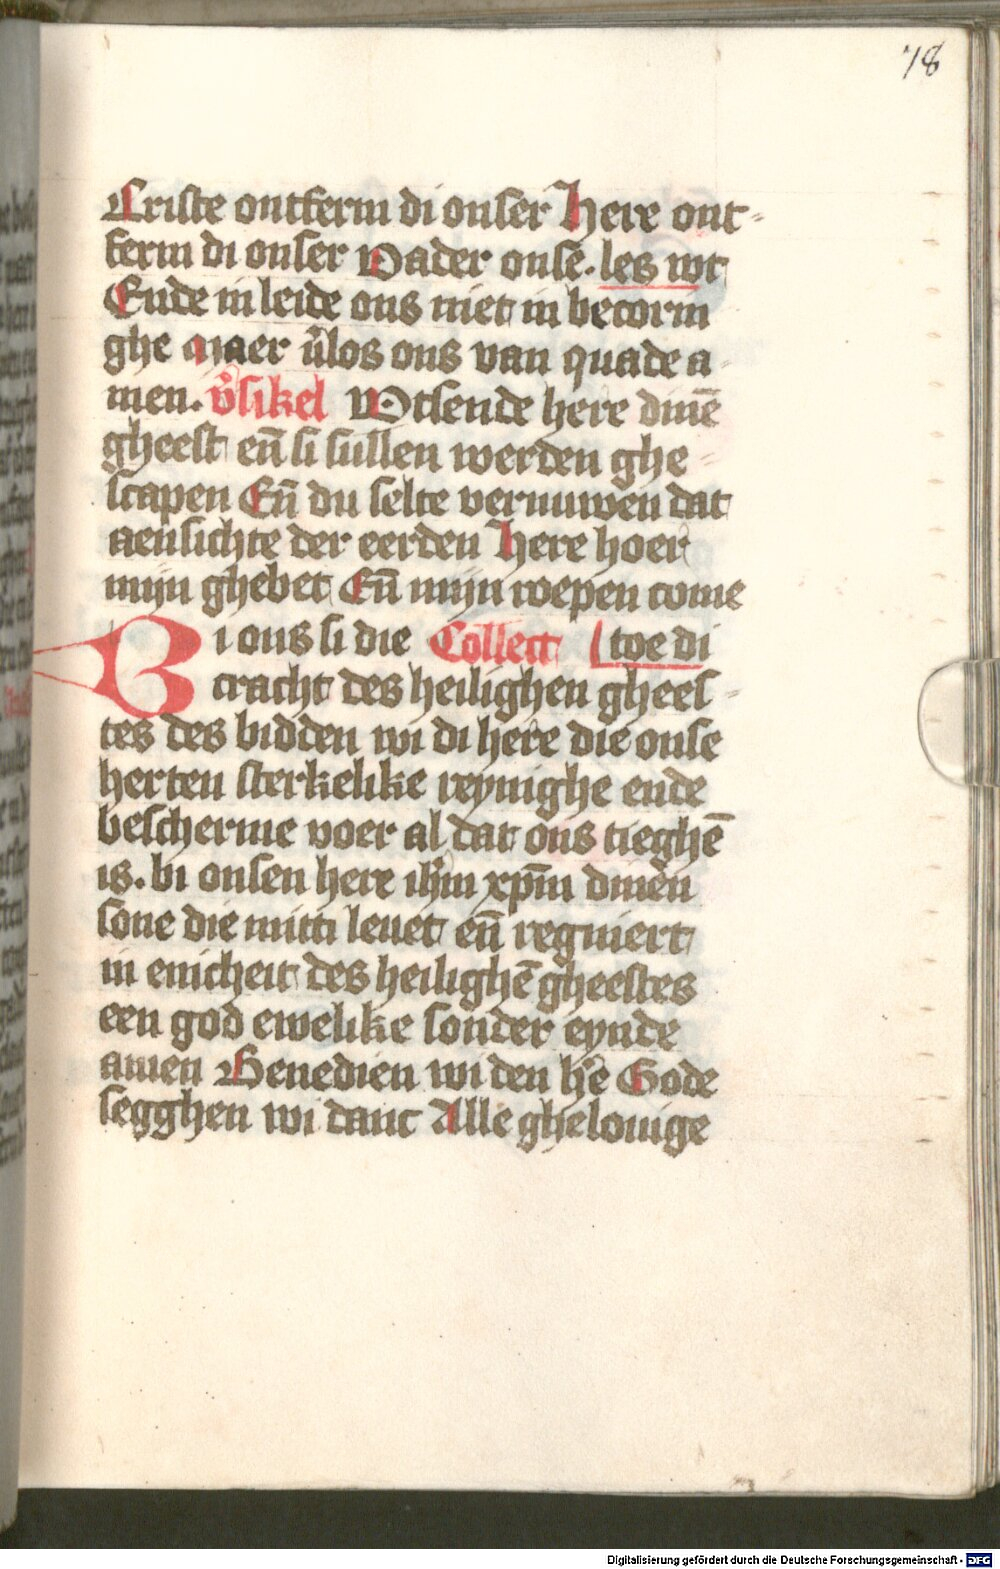 78
Criste ontferm di onser Here ont-
ferm di onser Vader onse. les wt
Ende in leide ons niet in becorin
ghe Maer v̉los ons van quade a
men. v̉sikel Wtsende here dinē
gheest en̄ si sullen werden ghe-
scapen En̄ du selte vernuwen dat
aensichte der eerden Here hoer
mijn ghebet En̄ mijn roepen come
Bi ons si die Collect toe di
cracht des heilighen ghees-
tes des bidden wi di here die onse
herten sterkelike reynighe ende
bescherme voer al dat ons tieghē
is. bi onsen here ihm̄ xpm̄ dinen
sone die mitti leuet en̄ regniert
in enicheit des heilighē gheestes
een god ewelike sonder eynde
amen Benedien wi den hē Gode
segghen wi danc Alle ghelouige
Digitalisierung gefördert durch die Deutsche Forschungsgemeinschaft - DFG